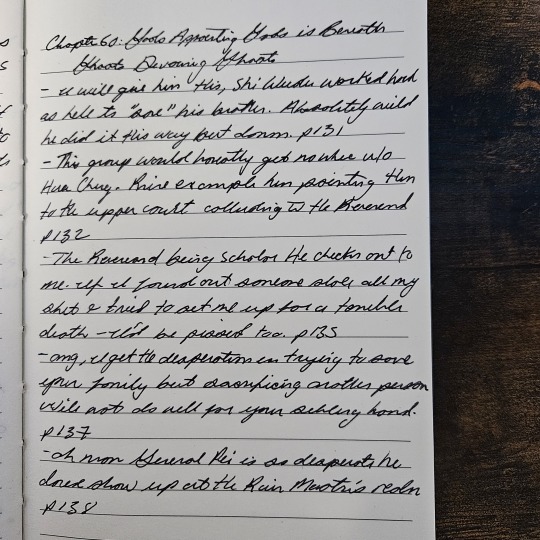 Chapter 60: Gods Appointing Gods is Beneath
Ghosts Devouring Ghosts
- I will give him this, Shi Wudu worked hard
as hell to "save" his brother. Absolutely wild
he did it this way but damn. p131
- This group would honestly get nowhere w/o
Hua Cheng. Prime example him pointing them
to the upper court colluding w the Reverend
p132
- The Reverend being Scholar He checks out to
me. If I found out someone stole all my
shit & tried to set me up for a terrible
death - I'd be pissed too. p135
- omg, I get the desperation in trying to save
your family but sacrificing another person
will not do well for your sibling bond.
p137
- oh man General Pei is so desperate he
dared show up at the Rain Master's realm
p138